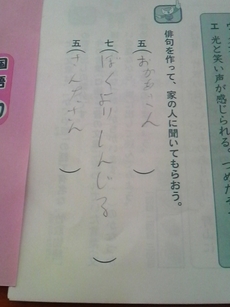 エ 光と笑い声が感じられる。つめた
俳句を作って、家の人に聞いてもらおう。
五（おかあさん）
七（ぼくよりしんじる）
五（さんたさん）
国語